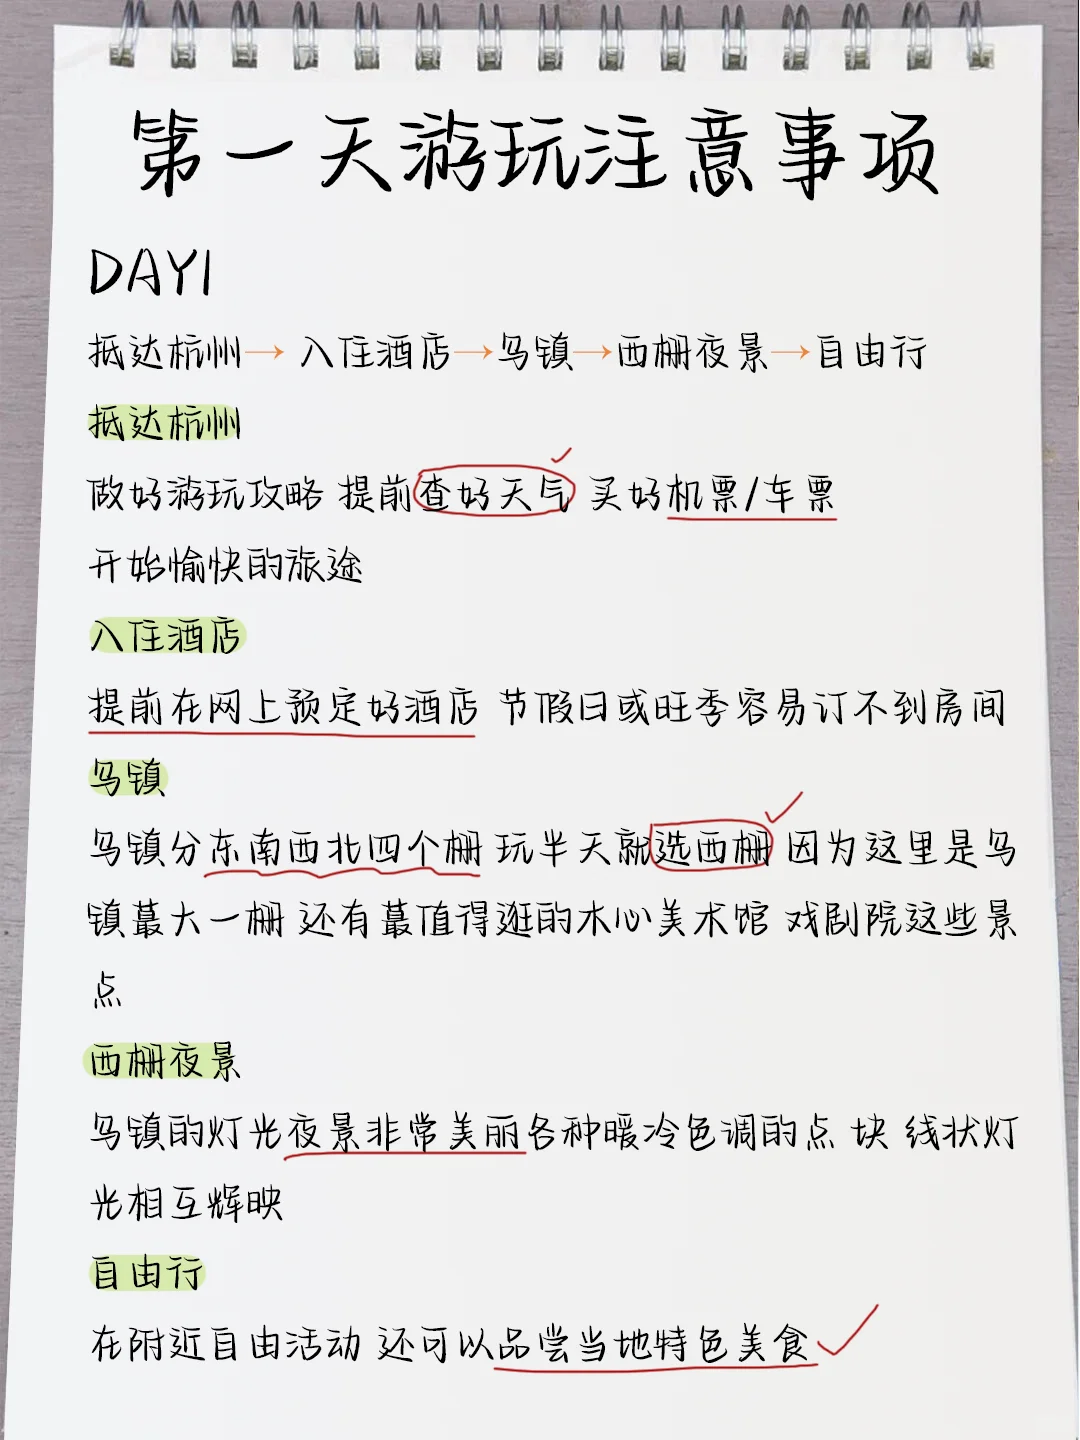 第一天游玩注意事项
DAY1
抵达杭州→入住酒店→乌镇→西栅夜景→自由行
抵达杭州
做好游玩攻略 提前查好天气 买好机票/车票
开始愉快的旅途
入住酒店
提前在网上预定好酒店 节假日或旺季容易订不到房间
乌镇
乌镇分东南西北四个栅 玩半天就选西栅 因为这里是乌
镇蕞大一栅 还有蕞值得逛的木心美术馆 戏剧院这些景
点
西栅夜景
乌镇的灯光夜景非常美丽各种暖冷色调的点 块 线状灯
光相互辉映
自由行
在附近自由活动 还可以品尝当地特色美食